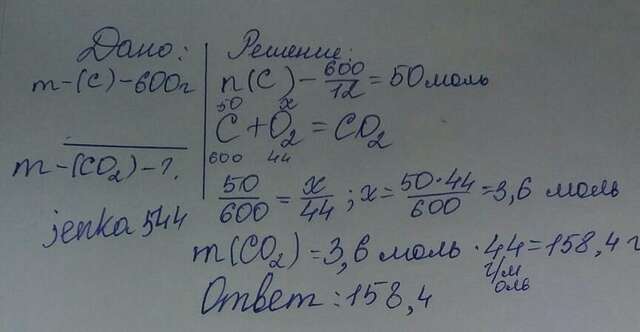 Дано:
m-(C)-600г
m-(CO₂)-?.
jenka 544
Решение:
n(C)-600/12=50моль
50 x
C+O₂=CO₂
600 44
50/600=x/44; x=50·44/600=3,6 моль
m(CO₂)=3,6 моль·44=158,4 г
г/моль
Ответ:158,4